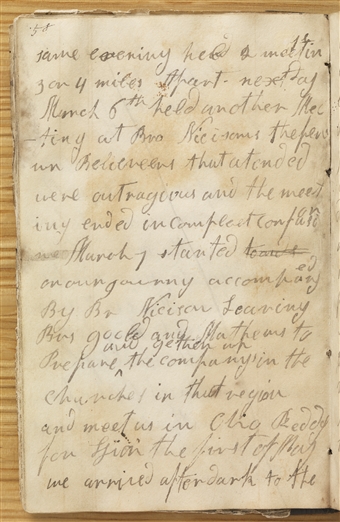 58
same evening held a meetin
3 or 4 miles apart. next day
March 6th held another Mee
ting at Bro Nicisons the
un Beleevers that atended
were outragious and the meet
ing ended in compleet confu
March 7 started towards
on our gourny accompaned
By Br Nicison Leaving
Bros and Mathews to
Prepare and gether up the company in the
churches in that region
and meet us in Redy
for the first of May
we arrived after dark to the